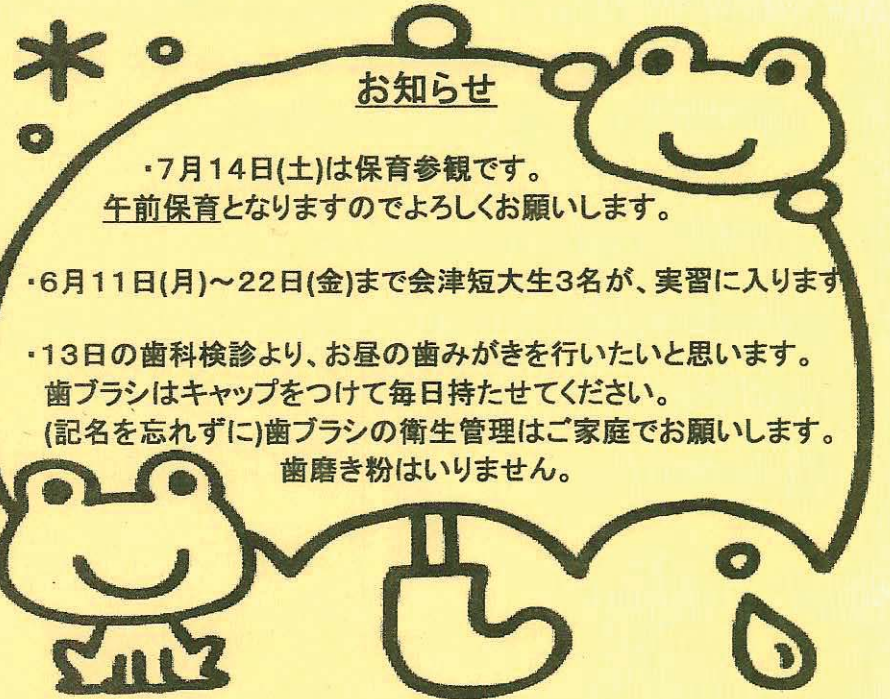 お知らせ
・7月14日(土)は保育参観です。
午前保育となりますのでよろしくお願いします。
・6月11日(月)～22日(金)まで会津短大生3名が、実習に入ります
・13日の歯科検診より、お昼の歯みがきを行いたいと思います。
歯ブラシはキャップをつけて毎日持たせてください。
(記名を忘れずに)歯ブラシの衛生管理はご家庭でお願いします。
歯磨き粉はいりません。